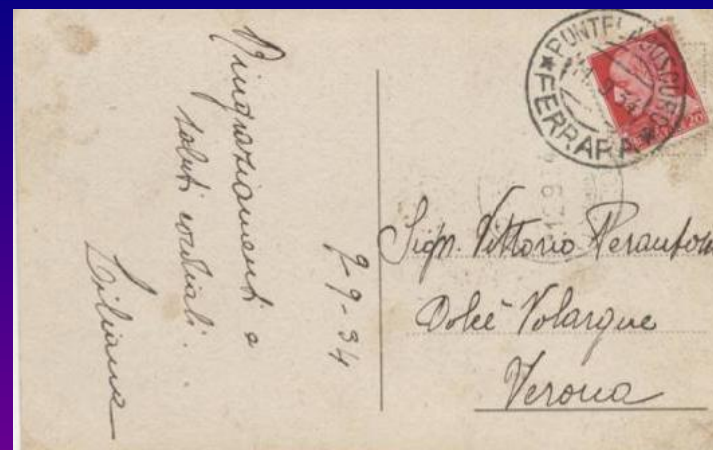 Ringraziamenti e
saluti cordiali.
Liliana
9-9-34
PONTELAGOSCURO
* FERRARA *
20
Sign. Vittorio
Dolcè Volargne
Verona